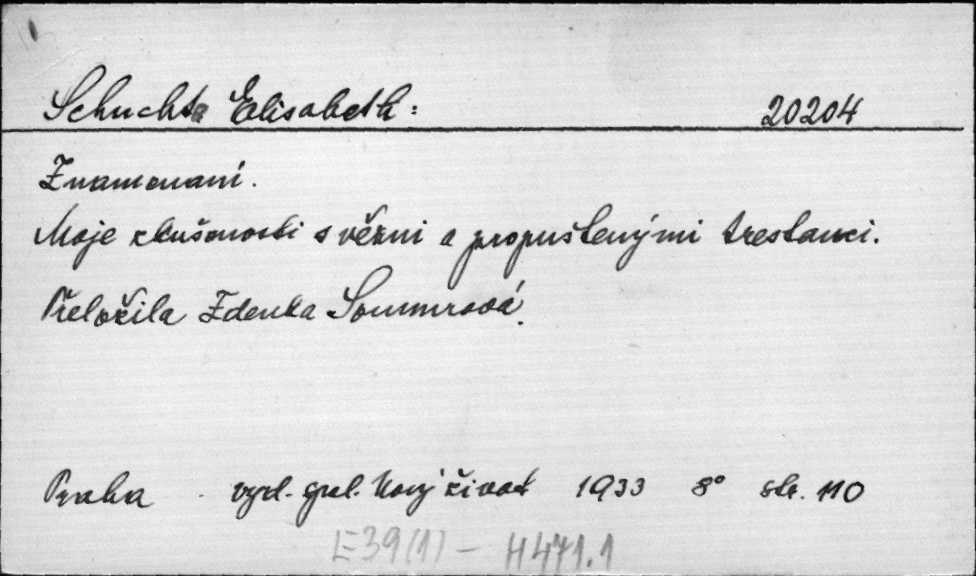 Schucht Elisabeth: 20204
Znamenaní.
Moje zkušenosti s vězni a propuštenými trestanci.
Přeložila Zdenka Sommrová.
Praha vyd. spol. Nový život 1933 8° str. 110
E39(1) – H471.1